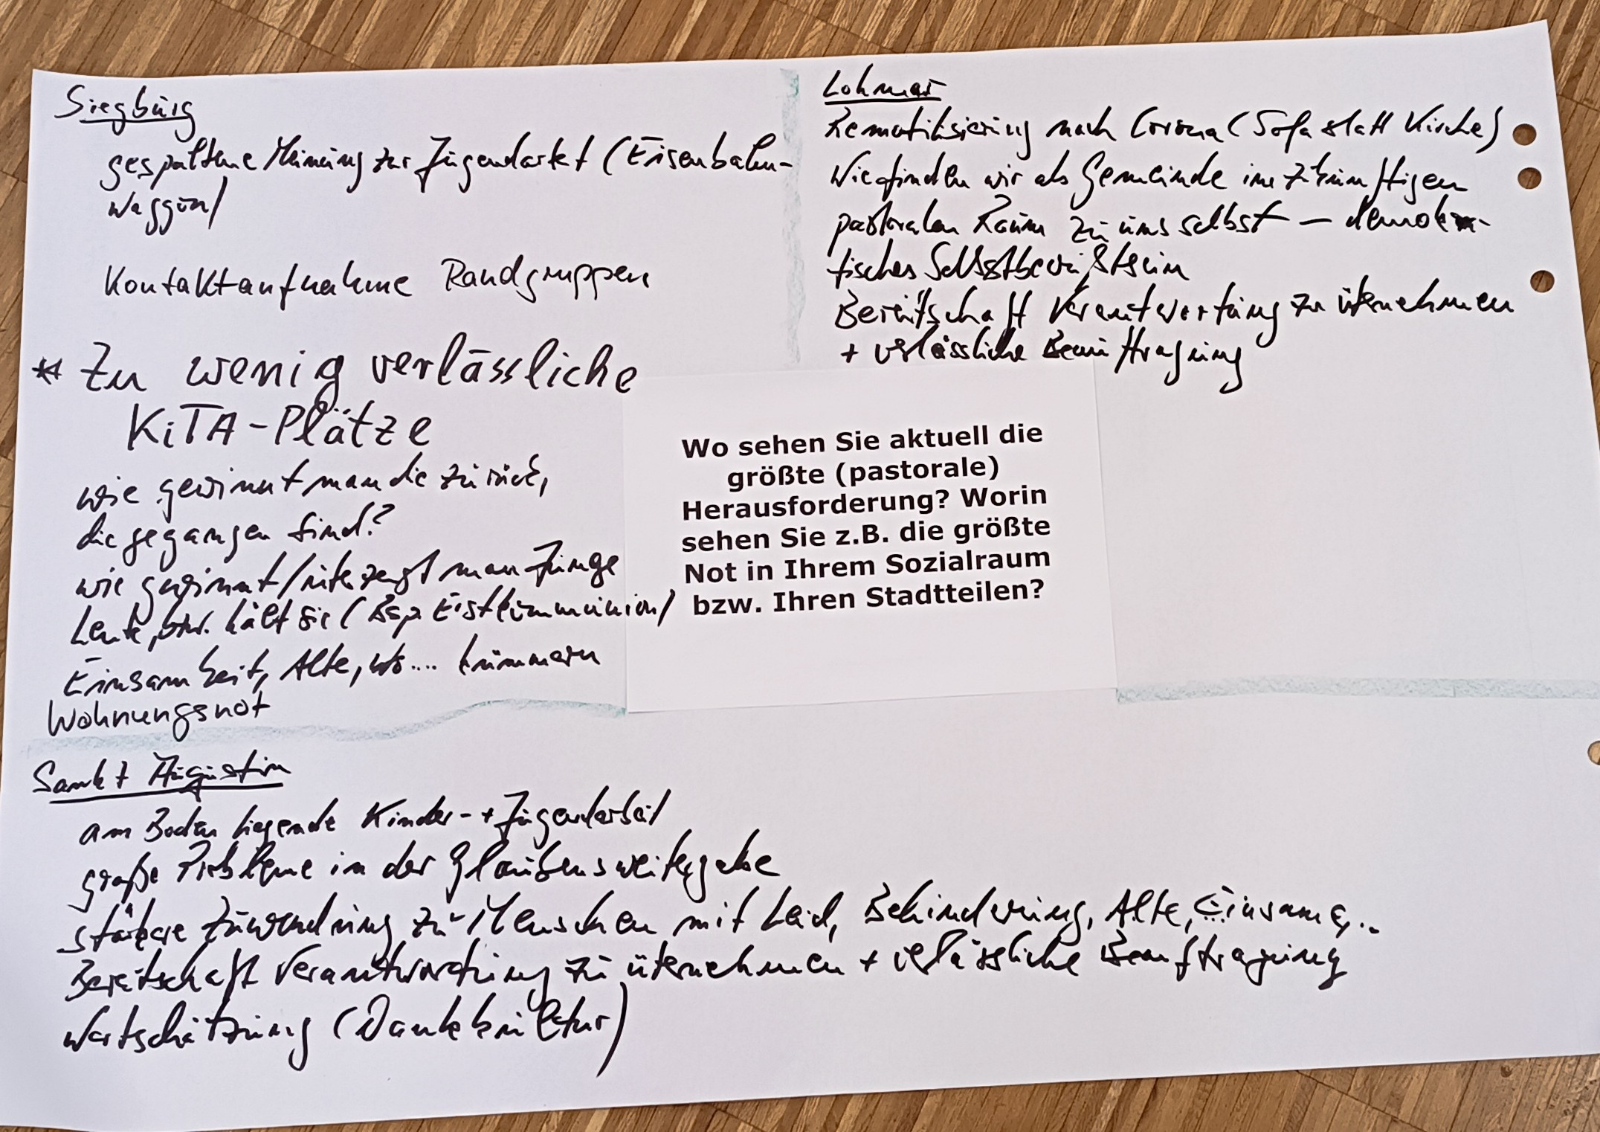 Siegburg
gespaltene Meinung zur Jugendarbeit (Eisenbahn-
waggon)
Kontaktaufnahme Randgruppen
* Zu wenig verlässliche
KiTA-Plätze
wie gewinnt man die zurück,
die gegangen sind?
wie gewinnt/ man Junge
Leute, bzw. hält sie (Bsp. Erstkommunion)
Einsamkeit, Alte, wo.... kümmern
Wohnungsnot
Lohmar
nach Corona (Sofa statt Kirche)
Wie finden wir als Gemeinde im zukünftigen
pastoralen Raum zu uns selbst – demokra-
tisches Selbstbewußtsein
Bereitschaft Verantwortung zu übernehmen
+ verlässliche Beauftragung
Wo sehen Sie aktuell die
größte (pastorale)
Herausforderung? Worin
sehen Sie z.B. die größte
Not in Ihrem Sozialraum
bzw. Ihren Stadtteilen?
Sankt Augustin
am Boden liegende Kinder- + Jugendarbeit
große Probleme in der Glaubensweitergabe
stärkere Zuwendung zu Menschen mit Leid, Behinderung, Alte, Einsame,..
Bereitschaft Verantwortung zu übernehmen + verlässliche Beauftragung
Wertschätzung (Dankekultur)